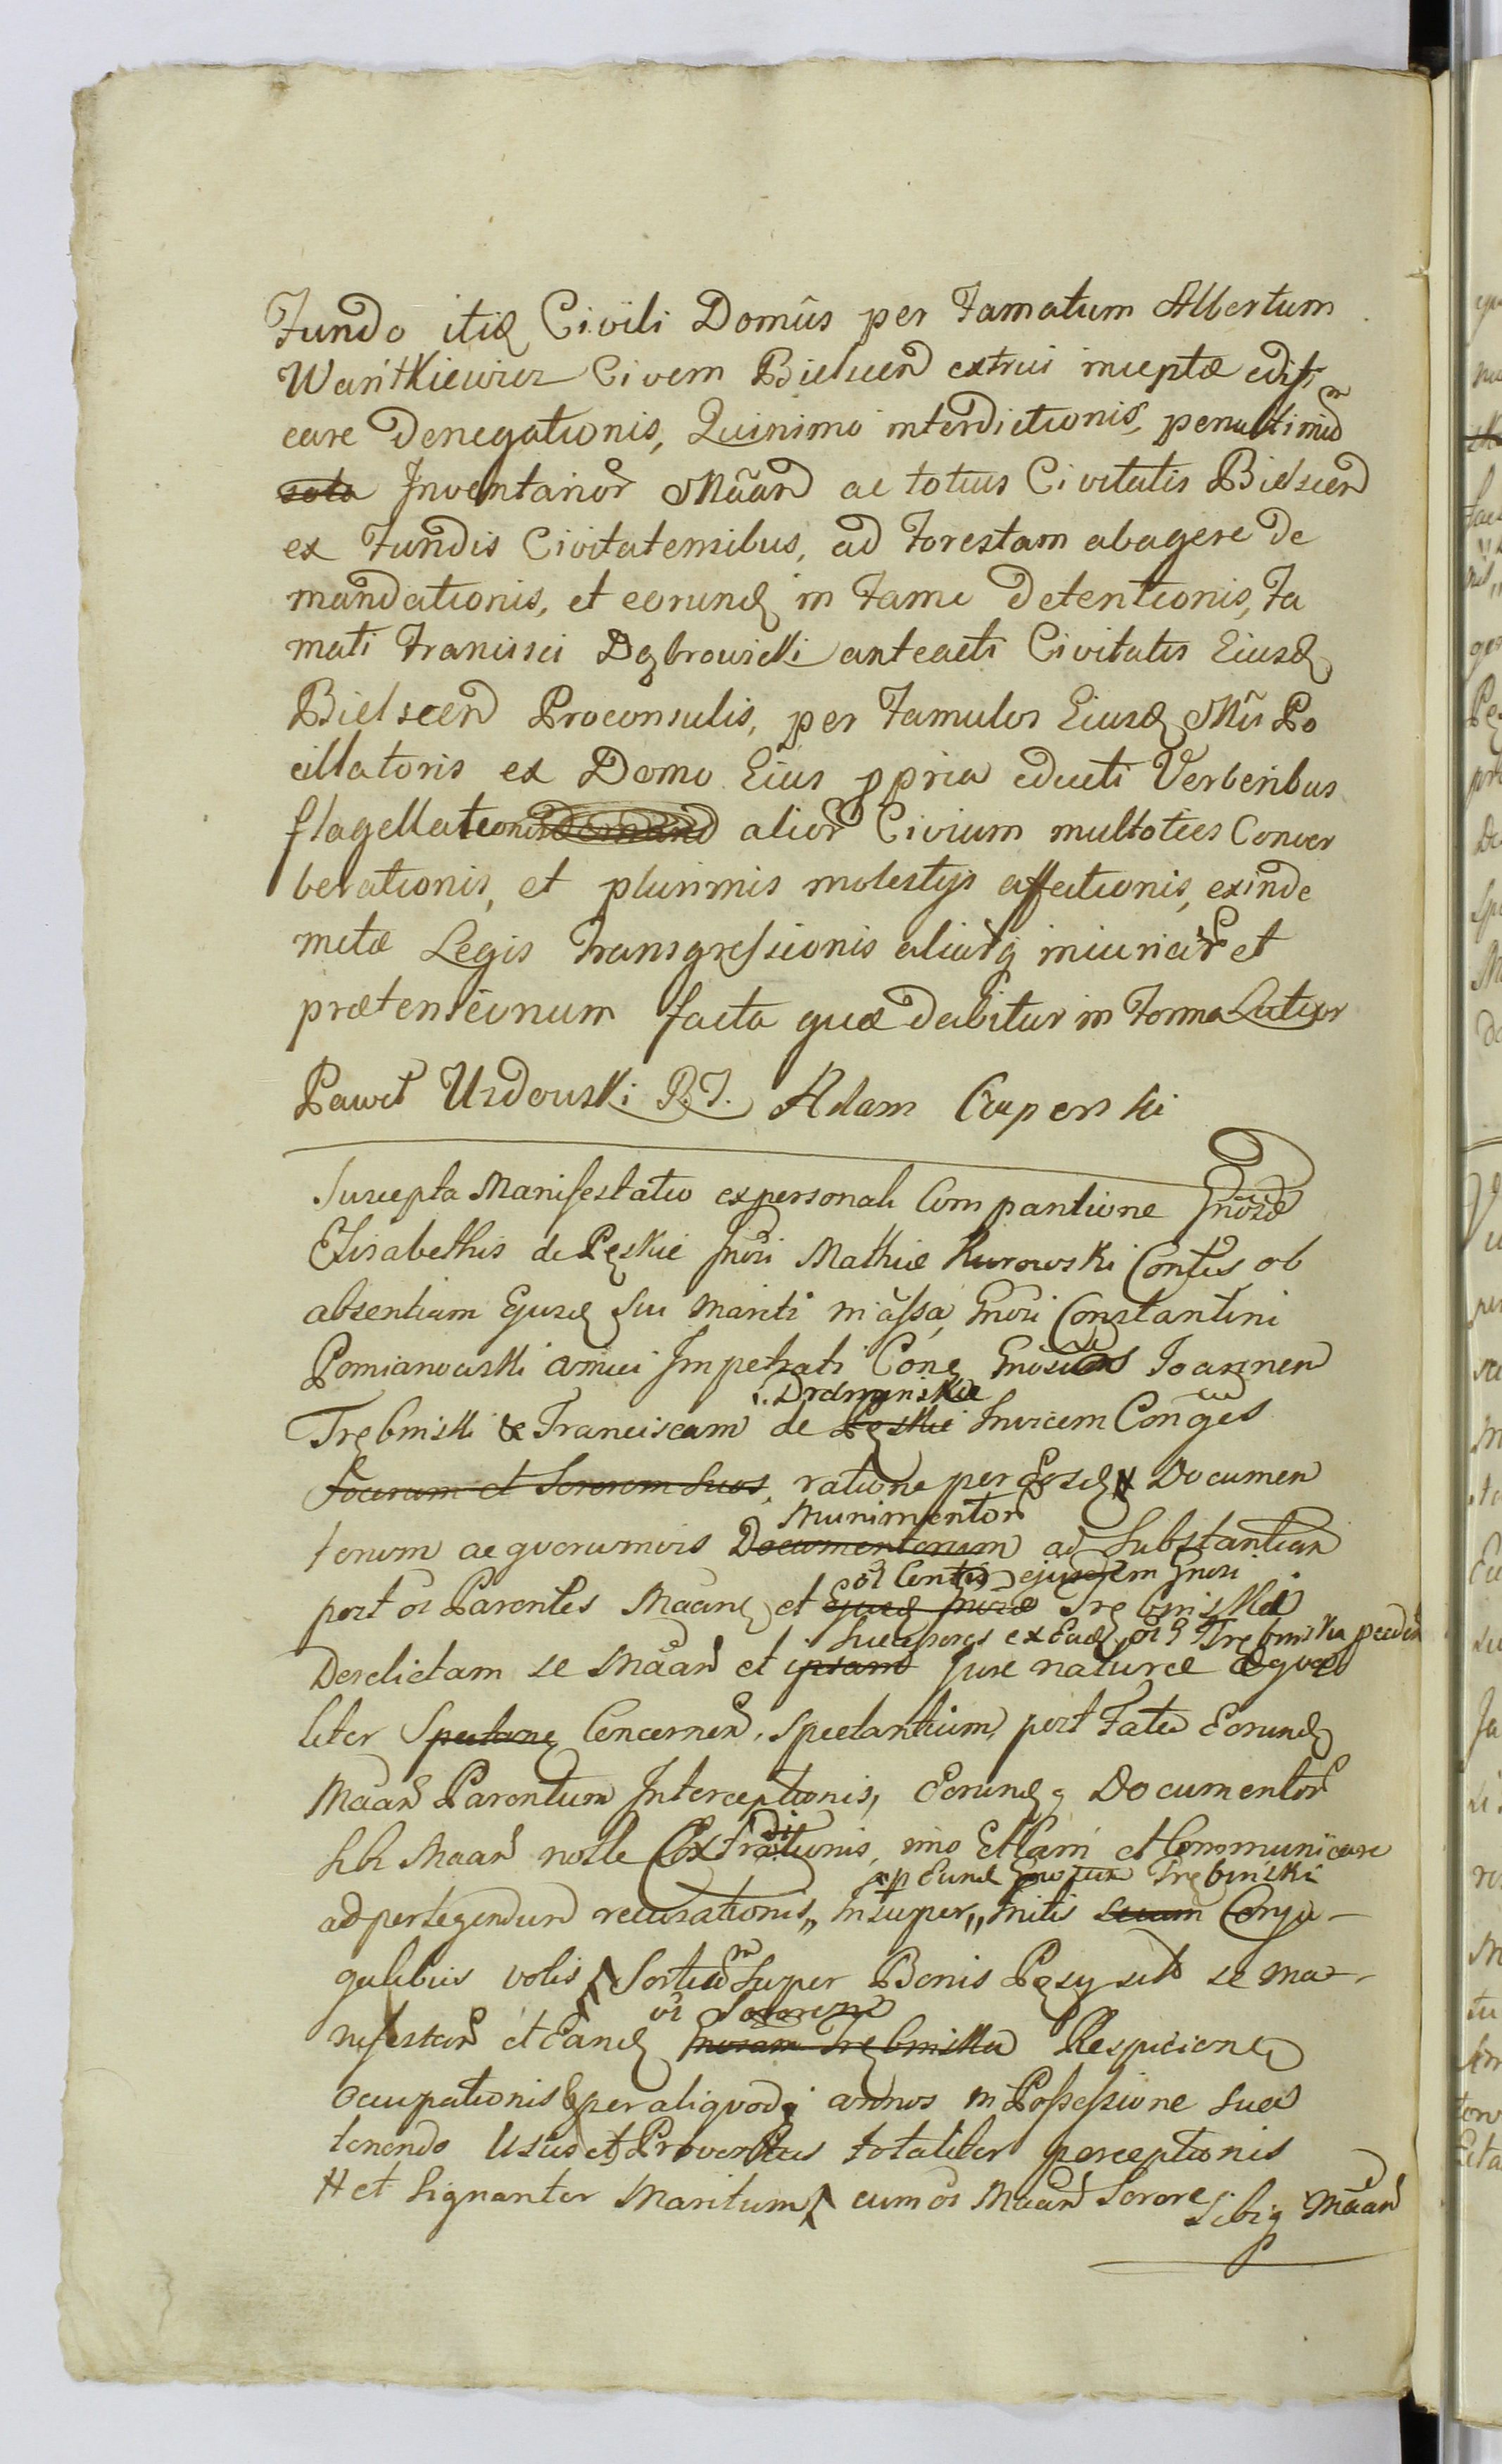 Fundo itiɋ Civili Domûs per Famatum Albertum
Wańtkiewicz Civem Bielscen extrui inceptæ edifi
care denegationis, Quinimo interdictionis, penultimũ
Inventarior Mãan ac totius Civitatis Bielscen
ex Fundis Civitatensibus, ad Forestam abagere de
mandationis, et eorund in Fame detentionis, Fa
mati Francisci Dąbrowski anteacti Civitatis Eiusd
Bielscen Proconsulis, per Famulos Eiusd Mci Po
cillatoris ex Domo Eius ppria educti Verberibus
flagellationis alior Civium multoties Conver
berationis, et plurimis molestijs affectionis, exinde
metæ Legis transgressionis aliarq iniuriar et
prætensionum facta quæ dabitur in Forma Latior
Paweł Uzdowski R.J. Adam Czaperski
Suscepta Manifestatio ex personali Comparitione Gnosæ
Elisabethis de Pęskie Gnosi Mathiæ Kurowski Contis ob
absentiam Ejusd sui Mariti in assa Gnosi Constantini
Pomianowski amici Impetrati Cone Gnosos Joannem
Drdmynskie
Trębinski & Franciscam de Pęskie Invicem Conges
Socerum et Sororem suos, ratione per Eosd Documen
Munimentor
torum ac quorumvis Documentorum ad Substantiam
oi Contis ejusdem Gnosi
post oi Parentes Maane et Ejusd Gnosæ Trębinska
Successores ex Ead oi Trębinska
Derelictam se Mãan et ipsam jure naturæ æqua
liter Spectane Concernen, spectantium, post Fata Eorund
Maan Parentum Interceptionis, Eorundq Documentor
sibi Maan nolle Extraditionis, imo Etiam et Communicare
p Eund Gnosum Trębinski
ad perlegendum recusationis,, Insuper,, Initis secum Conju-
galibus votis Sortem super Bonis Pęsy sitt se ma-
oi Sororem
nifestan et Eand Gnosam Trębinska Respicien
occupationis & per aliquod annos in Possessione sua
tenendo Usus et Proventus totaliter perceptionis
# et signanter Maritum cum oi Maan Sorore
Sibiq Mãan